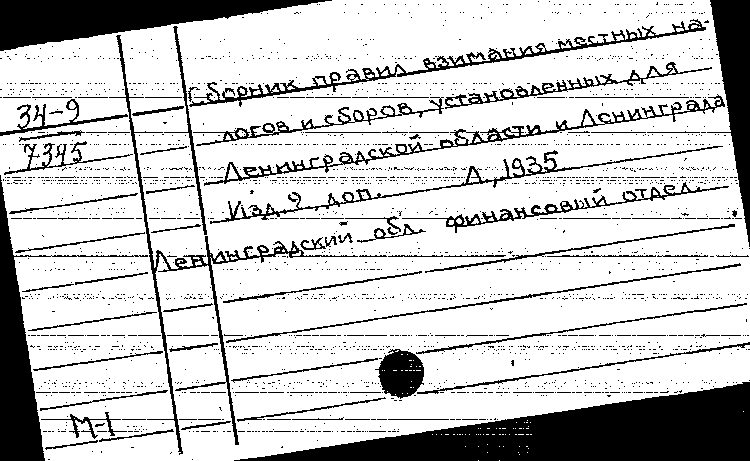 34-9
7345
Сборник правил взимания местных на-
логов и сборов, установленных для
Ленинградской области и Ленинграда
Изд. 2, доп. Л., 1935
Ленинградский обл. финансовый отдел.
М-1